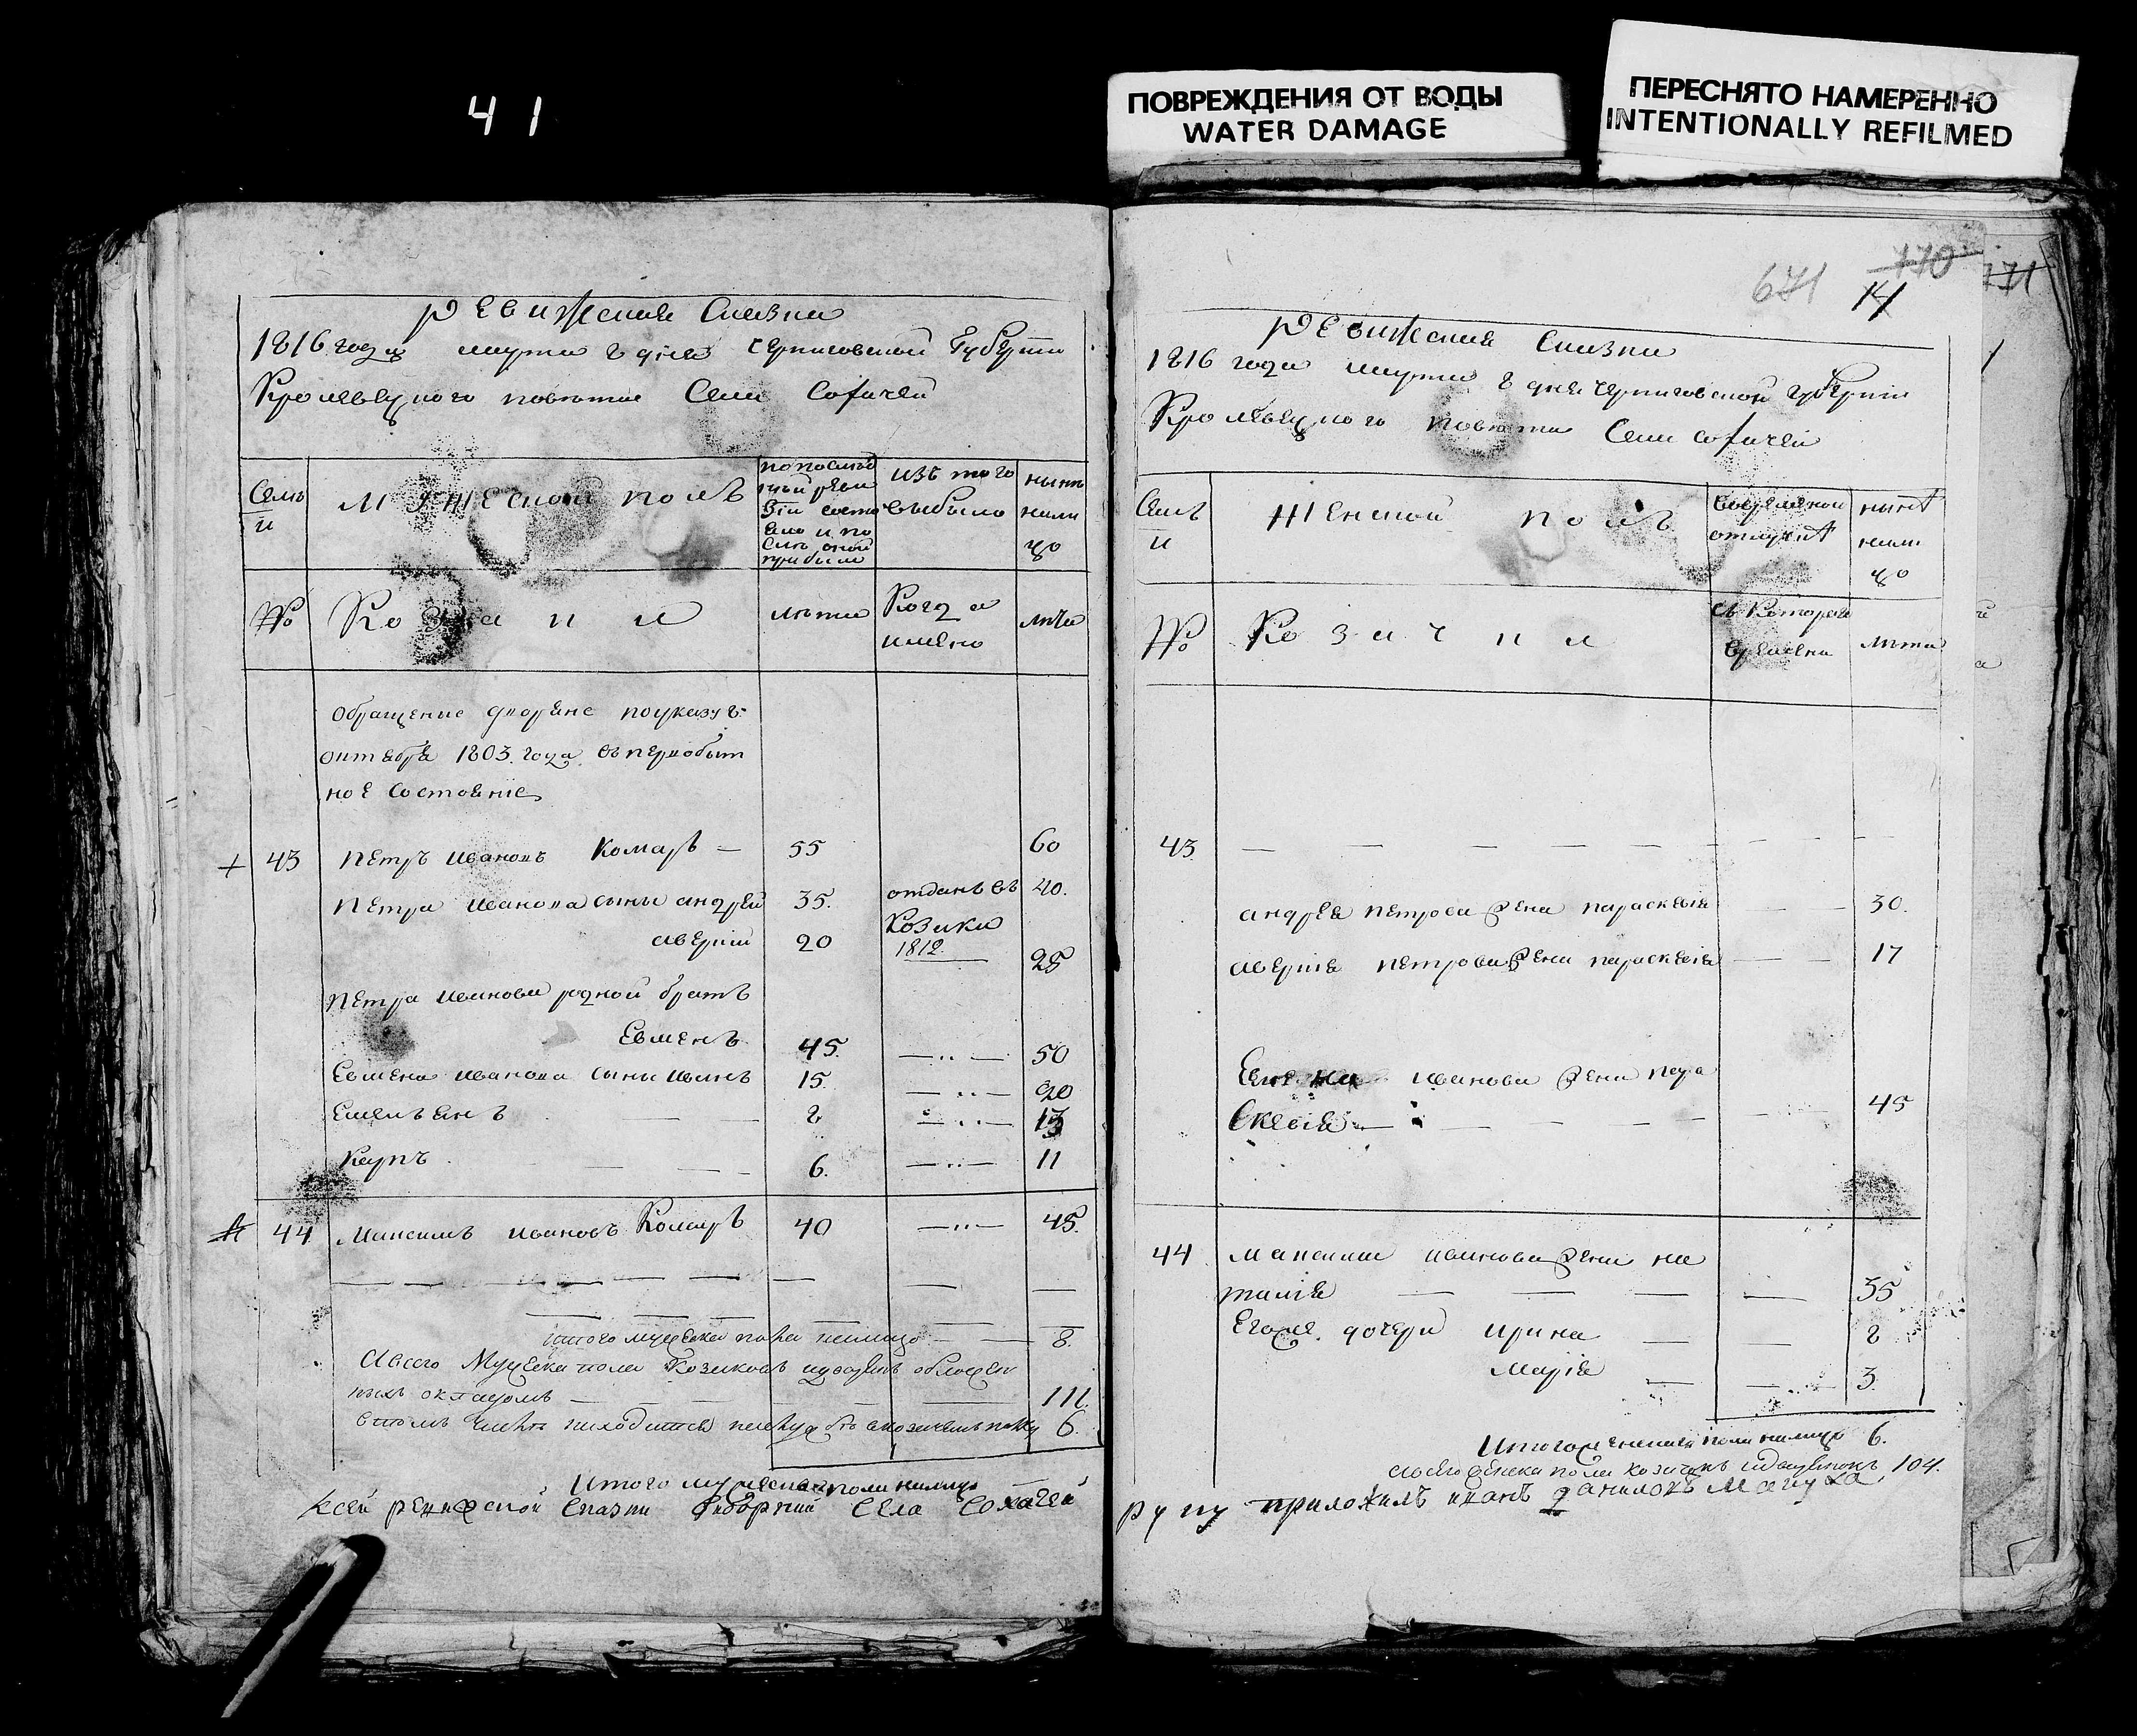 41
ПОВРЕЖДЕНИЯ ОТ ВОДЫ
WATER DAMAGE
ПЕРЕСНЯТО НАМЕРЕННО
INTENTIONALLY REFILMED
Ревижская Сказка
1816 года марта 8 дня Черниговской Губернии
Кролевецкого повета Села Сохачей
Семьи
Мужеской полъ
по послѣдней ревизии состояло и после оной прибыло
изъ того выбыло
нынѣ налицо
№
Козаки
лѣта
Когда имено
лѣта
Обращение дворяне по указу 8
октября 1803 года въ первобыт
ное состояние
43 Петръ Ивановъ Комаръ — 55 60
Петра Иванова сыны Андрей 35. отданъ въ 40.
Козаки
Аверий 20 1812. 25
Петра Иванова родной братъ
Евменъ 45. 50
Евмена Иванова сыны Иванъ 15. 20
Емельянъ 8 13
Карпъ 6. 11
44 Максимъ Ивановъ Комаръ 40 45.
Итого мужеска пола налицо 8.
А всего Мужеска пола Козаковъ
ныхъ окладомъ 111.
в томъ числѣ находится 6.
Итого мужеска пола налицо
К сей ревижской сказки выборний села Сохачей
671 770 14
771
Ревижская Сказка
1816 года марта 8 дня Черниговской Губернии
Кролевецкого повета Села Сохачей
Семьи
Женской полъ
Во временной отлучкѣ
нынѣ налицо
№
Козачки
съ Которого времени
лѣта
43
Андрея Петрова жена Параскевия 30.
Аверия Петрова жена Параскевия 17
Евмена Иванова жена Пара
скевия 45
44 Максима Иванова жена На
талия 35
Его же дочери Ирина 8
Мария 3.
Итого женска пола налицо 6.
а всего женска пола козачекъ 104.
руку приложилъ Иванъ Даниловъ